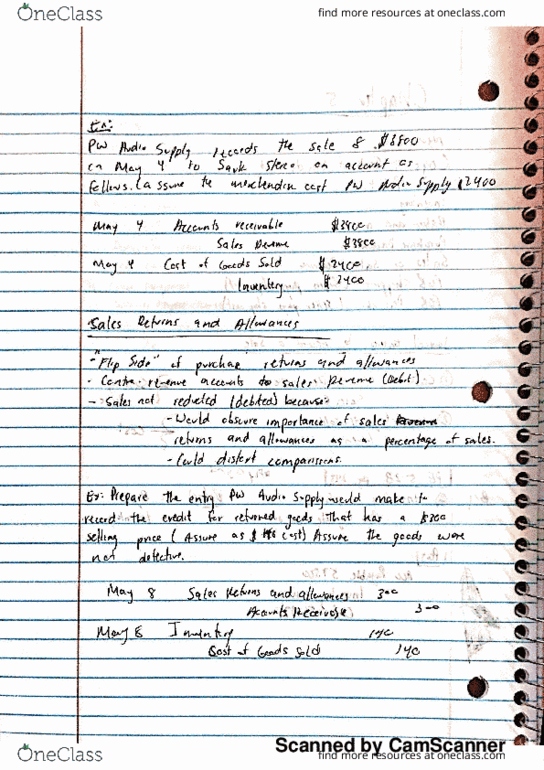 OneClass
find more resources at oneclass.com
Ex:
PW Audio Supply records the sale of $3800
on May 4 to Sauk Stereo on account as
follows. (assume the merchandise cost PW Audio Supply $2400
May 4 Accounts receivable $3800
Sales Revenue $3800
May 4 Cost of Goods Sold $2400
Inventory $2400
Sales Returns and Allowances
- "Flip Side" of purchase returns and allowances
- Contra-revenue accounts to sales revenue (debit)
- Sales not reduced (debited) because:
- Would obscure importance of sales
returns and allowances as a percentage of sales.
- Could distort comparisons.
Ex: Prepare the entry PW Audio Supply would make to
record the credit for returned goods that has a $300
selling price (Assume as $140 cost) Assume the goods were
not defective.
May 8 Sales Returns and allowances 300
Accounts Receivable 300
May 8 Inventory 140
Cost of Goods Sold 140
Scanned by CamScanner
OneClass
find more resources at oneclass.com